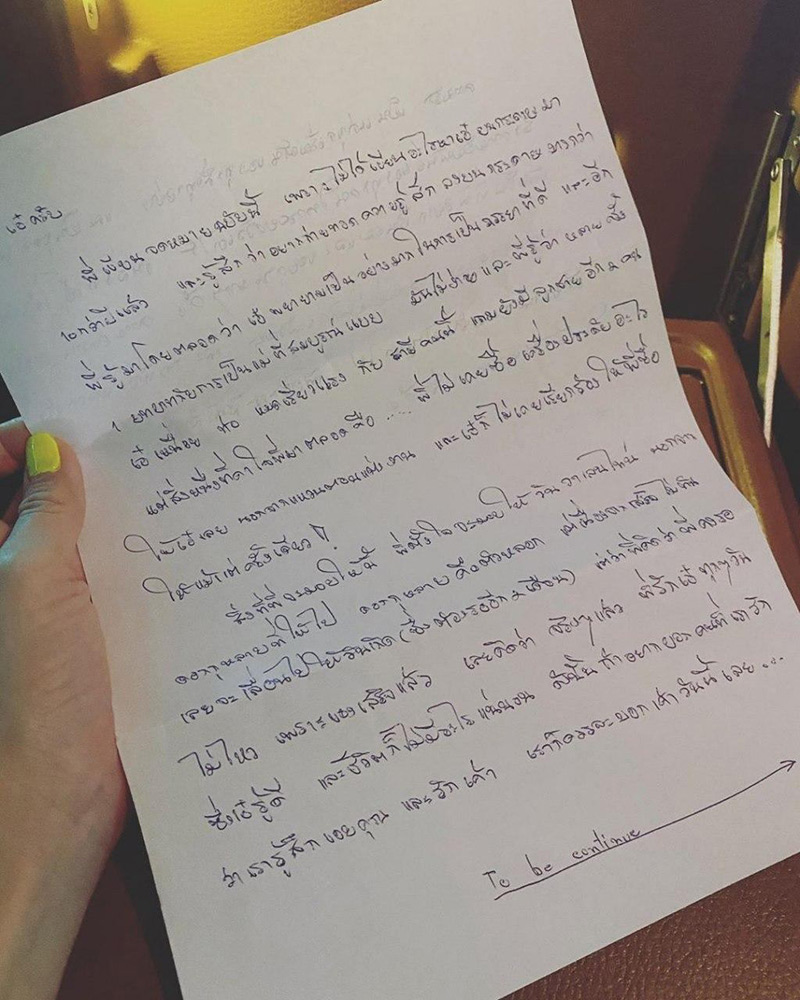 เอ๋ครับ
พี่เขียนจดหมายฉบับนี้ เพราะไม่ได้เขียนอะไรหาเอ๋บนกระดาษมา
10กว่าปีแล้ว และรู้สึกว่าอยากถ่ายทอดความรู้สึกลงบนกระดาษมากกว่า
พี่รู้มาโดยตลอดว่า เอ๋ พยายามเป็นอย่างมากในการเป็นภรรยาที่ดี และอีก
1 บทบาทกับการเป็นแม่ที่สมบูรณ์แบบ มันไม่ง่ายและพี่รู้ว่า หลายครั้ง
เอ๋เหนื่อย ท้อ หมดเรี่ยวแรง กับ สามีคนนี้ แถมยังมีลูกชายอีก 2 คน
แต่สิ่งหนึ่งที่คาใจพี่มาตลอดคือ .... พี่ไม่เคยซื้อเครื่องประดับอะไร
ให้เอ๋เลย นอกจากแหวนตอนแต่งงาน และเอ๋ก็ไม่เคยเรียกร้องให้พี่ซื้อ
ให้แม้แต่ครั้งเดียว!
สิ่งที่พี่จะมอบให้นี้ พี่ตั้งใจจะมอบให้วันวาเลนไทน์ นอกจาก
ดอกกุหลาบที่ให้ไป ดอกกุหลาบคือตัวหลอก แต่เนื่องจากเสร็จไม่ทัน
เลยจะเลื่อนไปให้วันเกิด (ซึ่งต้องรออีก 2 เดือน) แต่ว่าพี่คิดว่าพี่คงรอ
ไม่ไหว เพราะของเสร็จแล้ว และคิดว่า จริงๆแล้ว พี่รักเอ๋ทุกๆวัน
ซึ่งเอ๋รู้ดี และชีวิตก็ไม่มีอะไรแน่นอน ดังนั้นถ้าอยากบอกคนที่เรารัก
ว่าเรารู้สึกขอบคุณ และรักเค้า เราก็ควรจะบอกเค้าวันนี้เลย...
To be continue